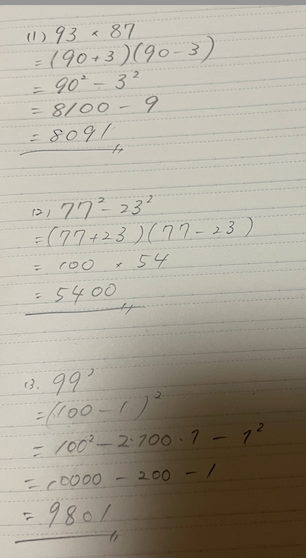 (1) 93 × 87
= (90+3)(90-3)
= 90² - 3²
= 8100 - 9
= 8091
(2) 77² - 23²
= (77+23)(77-23)
= 100 × 54
= 5400
(3. 99²
= (100-1)²
= 100² - 2·100·1 - 1²
= 10000 - 200 - 1
= 9801